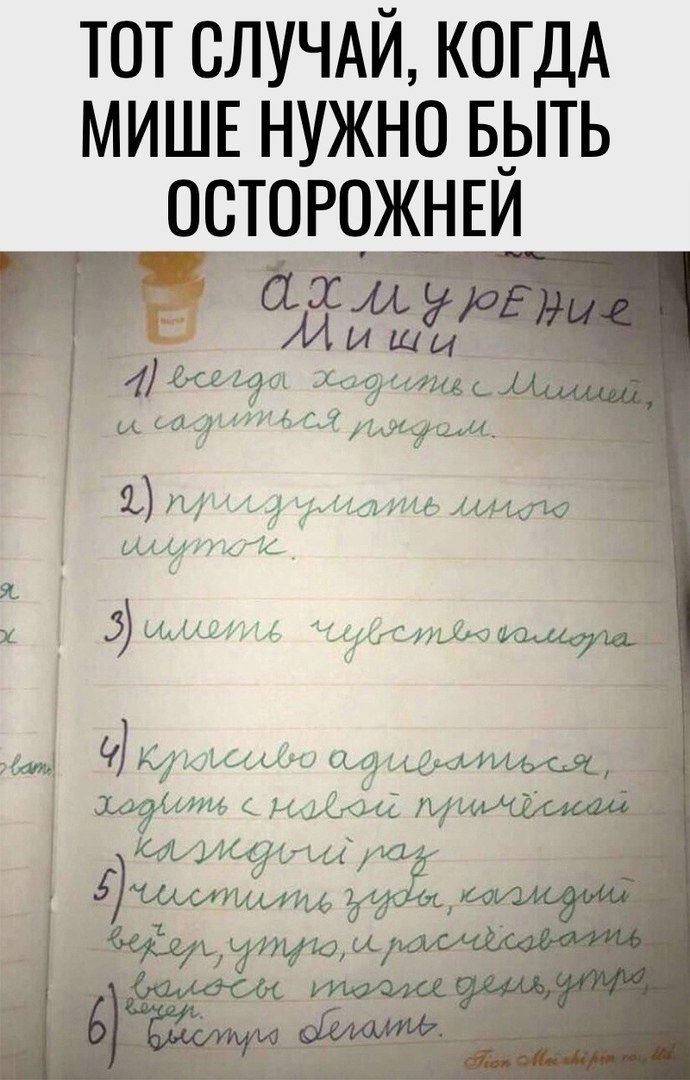 ТОТ СЛУЧАЙ, КОГДА
МИШЕ НУЖНО БЫТЬ
ОСТОРОЖНЕЙ
ахмурЕНие
Миши
1) всегда ходить с Мишей,
и садиться рядом.
2) придумать много
шуток.
3) иметь чувство юмора
4) красиво адиваться,
ходить с новой причёской
каждый раз
5) чистить зубы, каждый
вечер, утро, и расчёсовать
волосы тоже день, утро,
вечер.
6) Быстро бегать.
я
х
овать